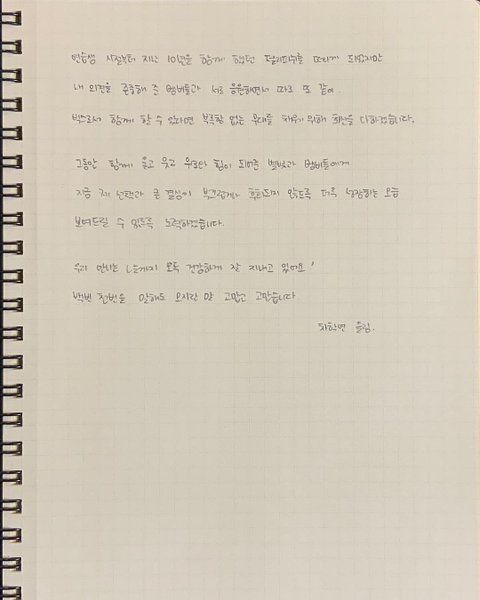 연습생 시절부터 지난 10년을 함께 했던 젤리피쉬를 떠나게 되었지만
내 의견을 존중해 준 멤버들과 서로 응원하면서 따로 또 같이.
빅스로서 함께 할 수 있다면 부족함 없는 무대를 채우기 위해 최선을 다하겠습니다.
그동안 함께 울고 웃고 위로와 힘이 되어준 별빛과 멤버들에게
지금 제 선택과 큰 결심이 부끄럽거나 후회되지 않도록 더욱 성장하는 모습
보여드릴 수 있도록 노력하겠습니다.
우리 만나는 그날까지 모두 건강하게 잘 지내고 있어요'
백번 천번을 말해도 모자란 말 고맙고 고맙습니다
차학연 올림.